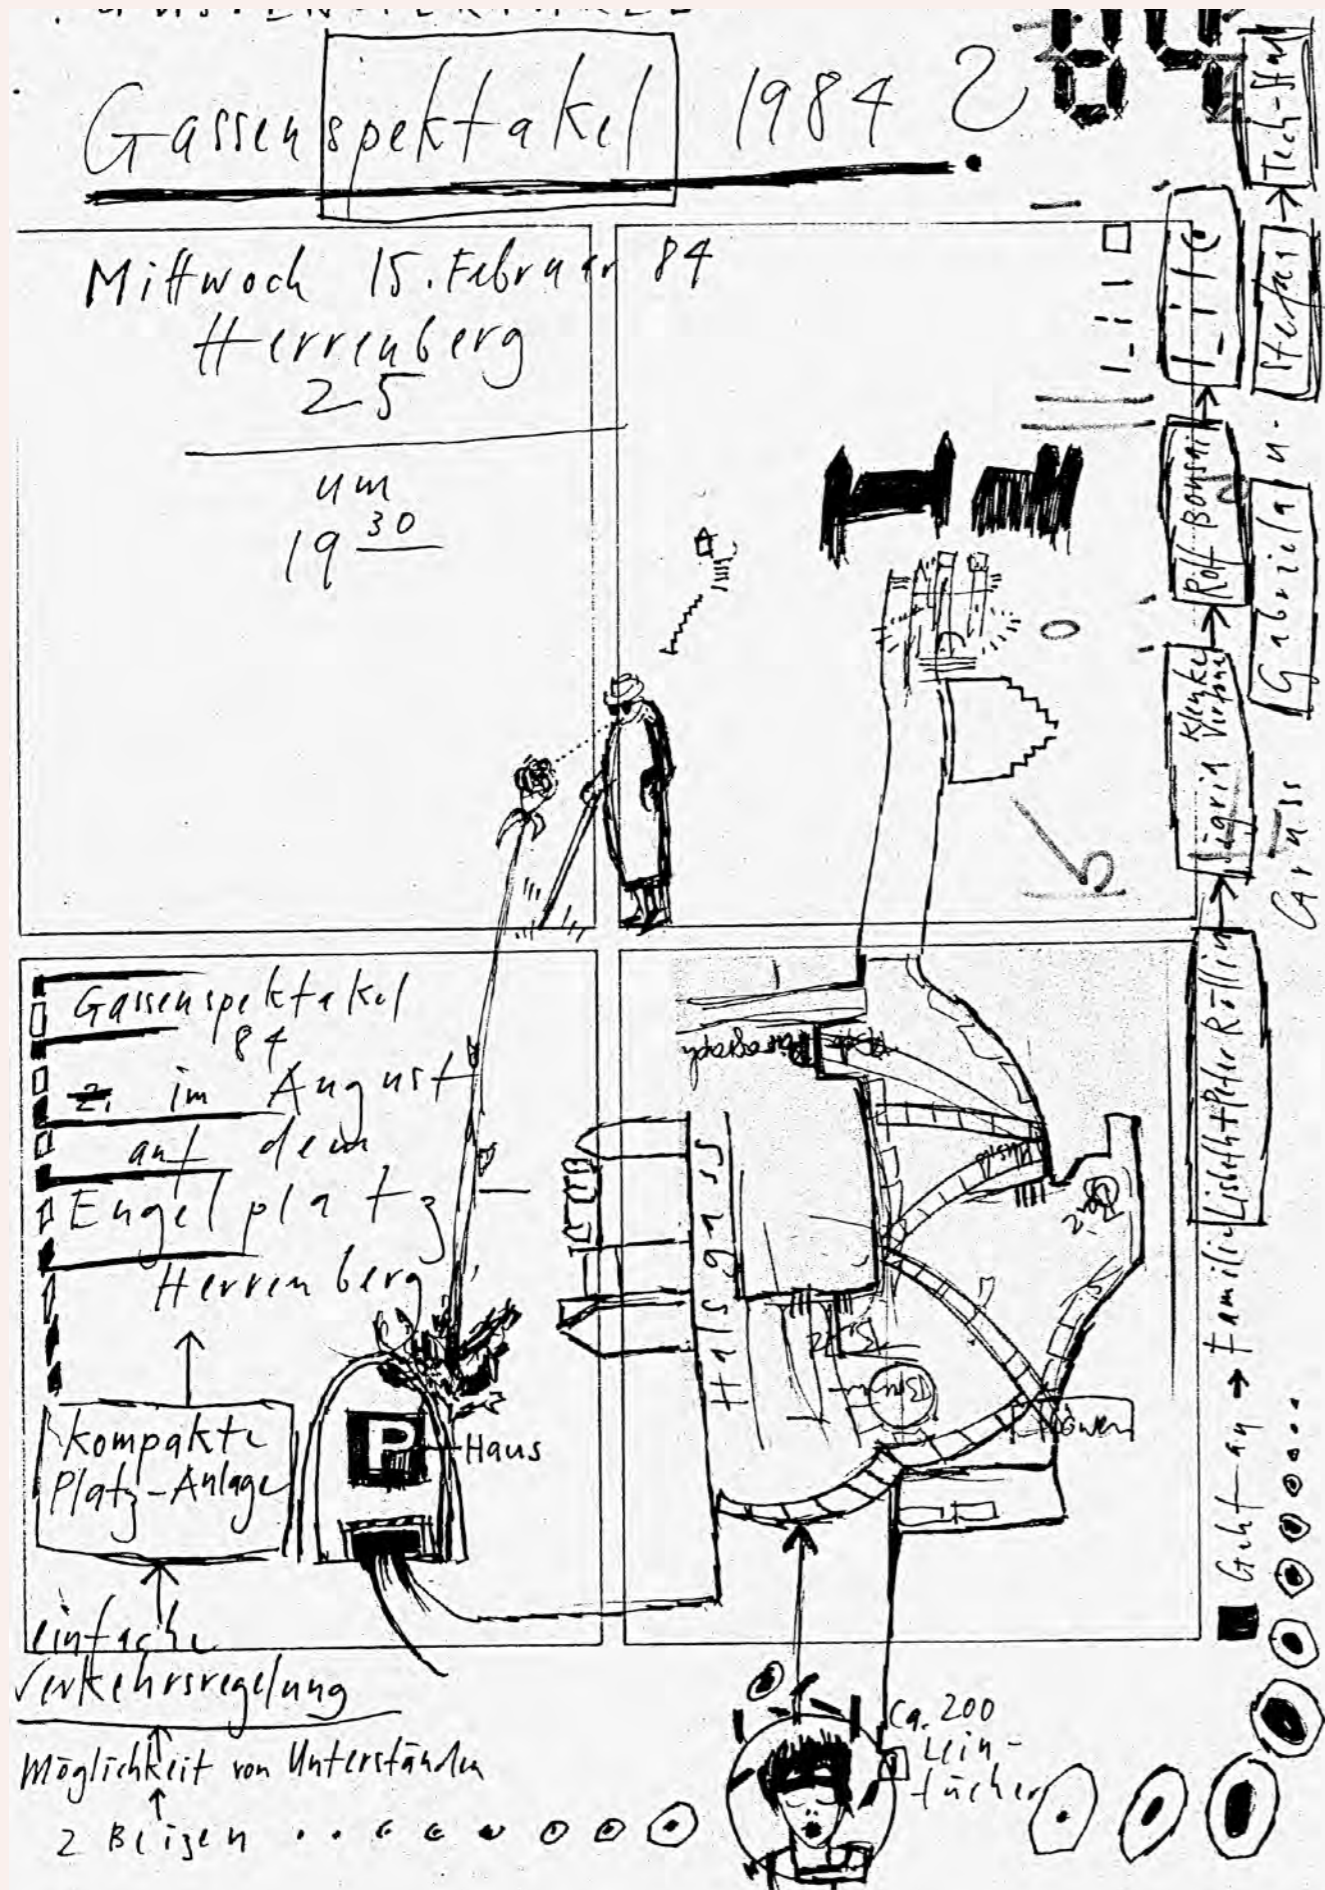 Gassenspektakel 1984
84
Mittwoch 15. Februar 84
Herrenberg
25
um
19 30
Gassenspektakel
84
im August
auf dem
Engelplatz
Herrenberg
kompakte
Platz-Anlage
einfache
Verkehrsregelung
Möglichkeit von Unterständen
2 Beizen
P
Haus
Halsgass
Paragraph
Löwen
ca. 200
Lein-
tücher
Geht an → Familie Lisbeth + Peter Röllin → Sigrid → Rolf Bonsai →
Gruss Gabriela u. Stefan →